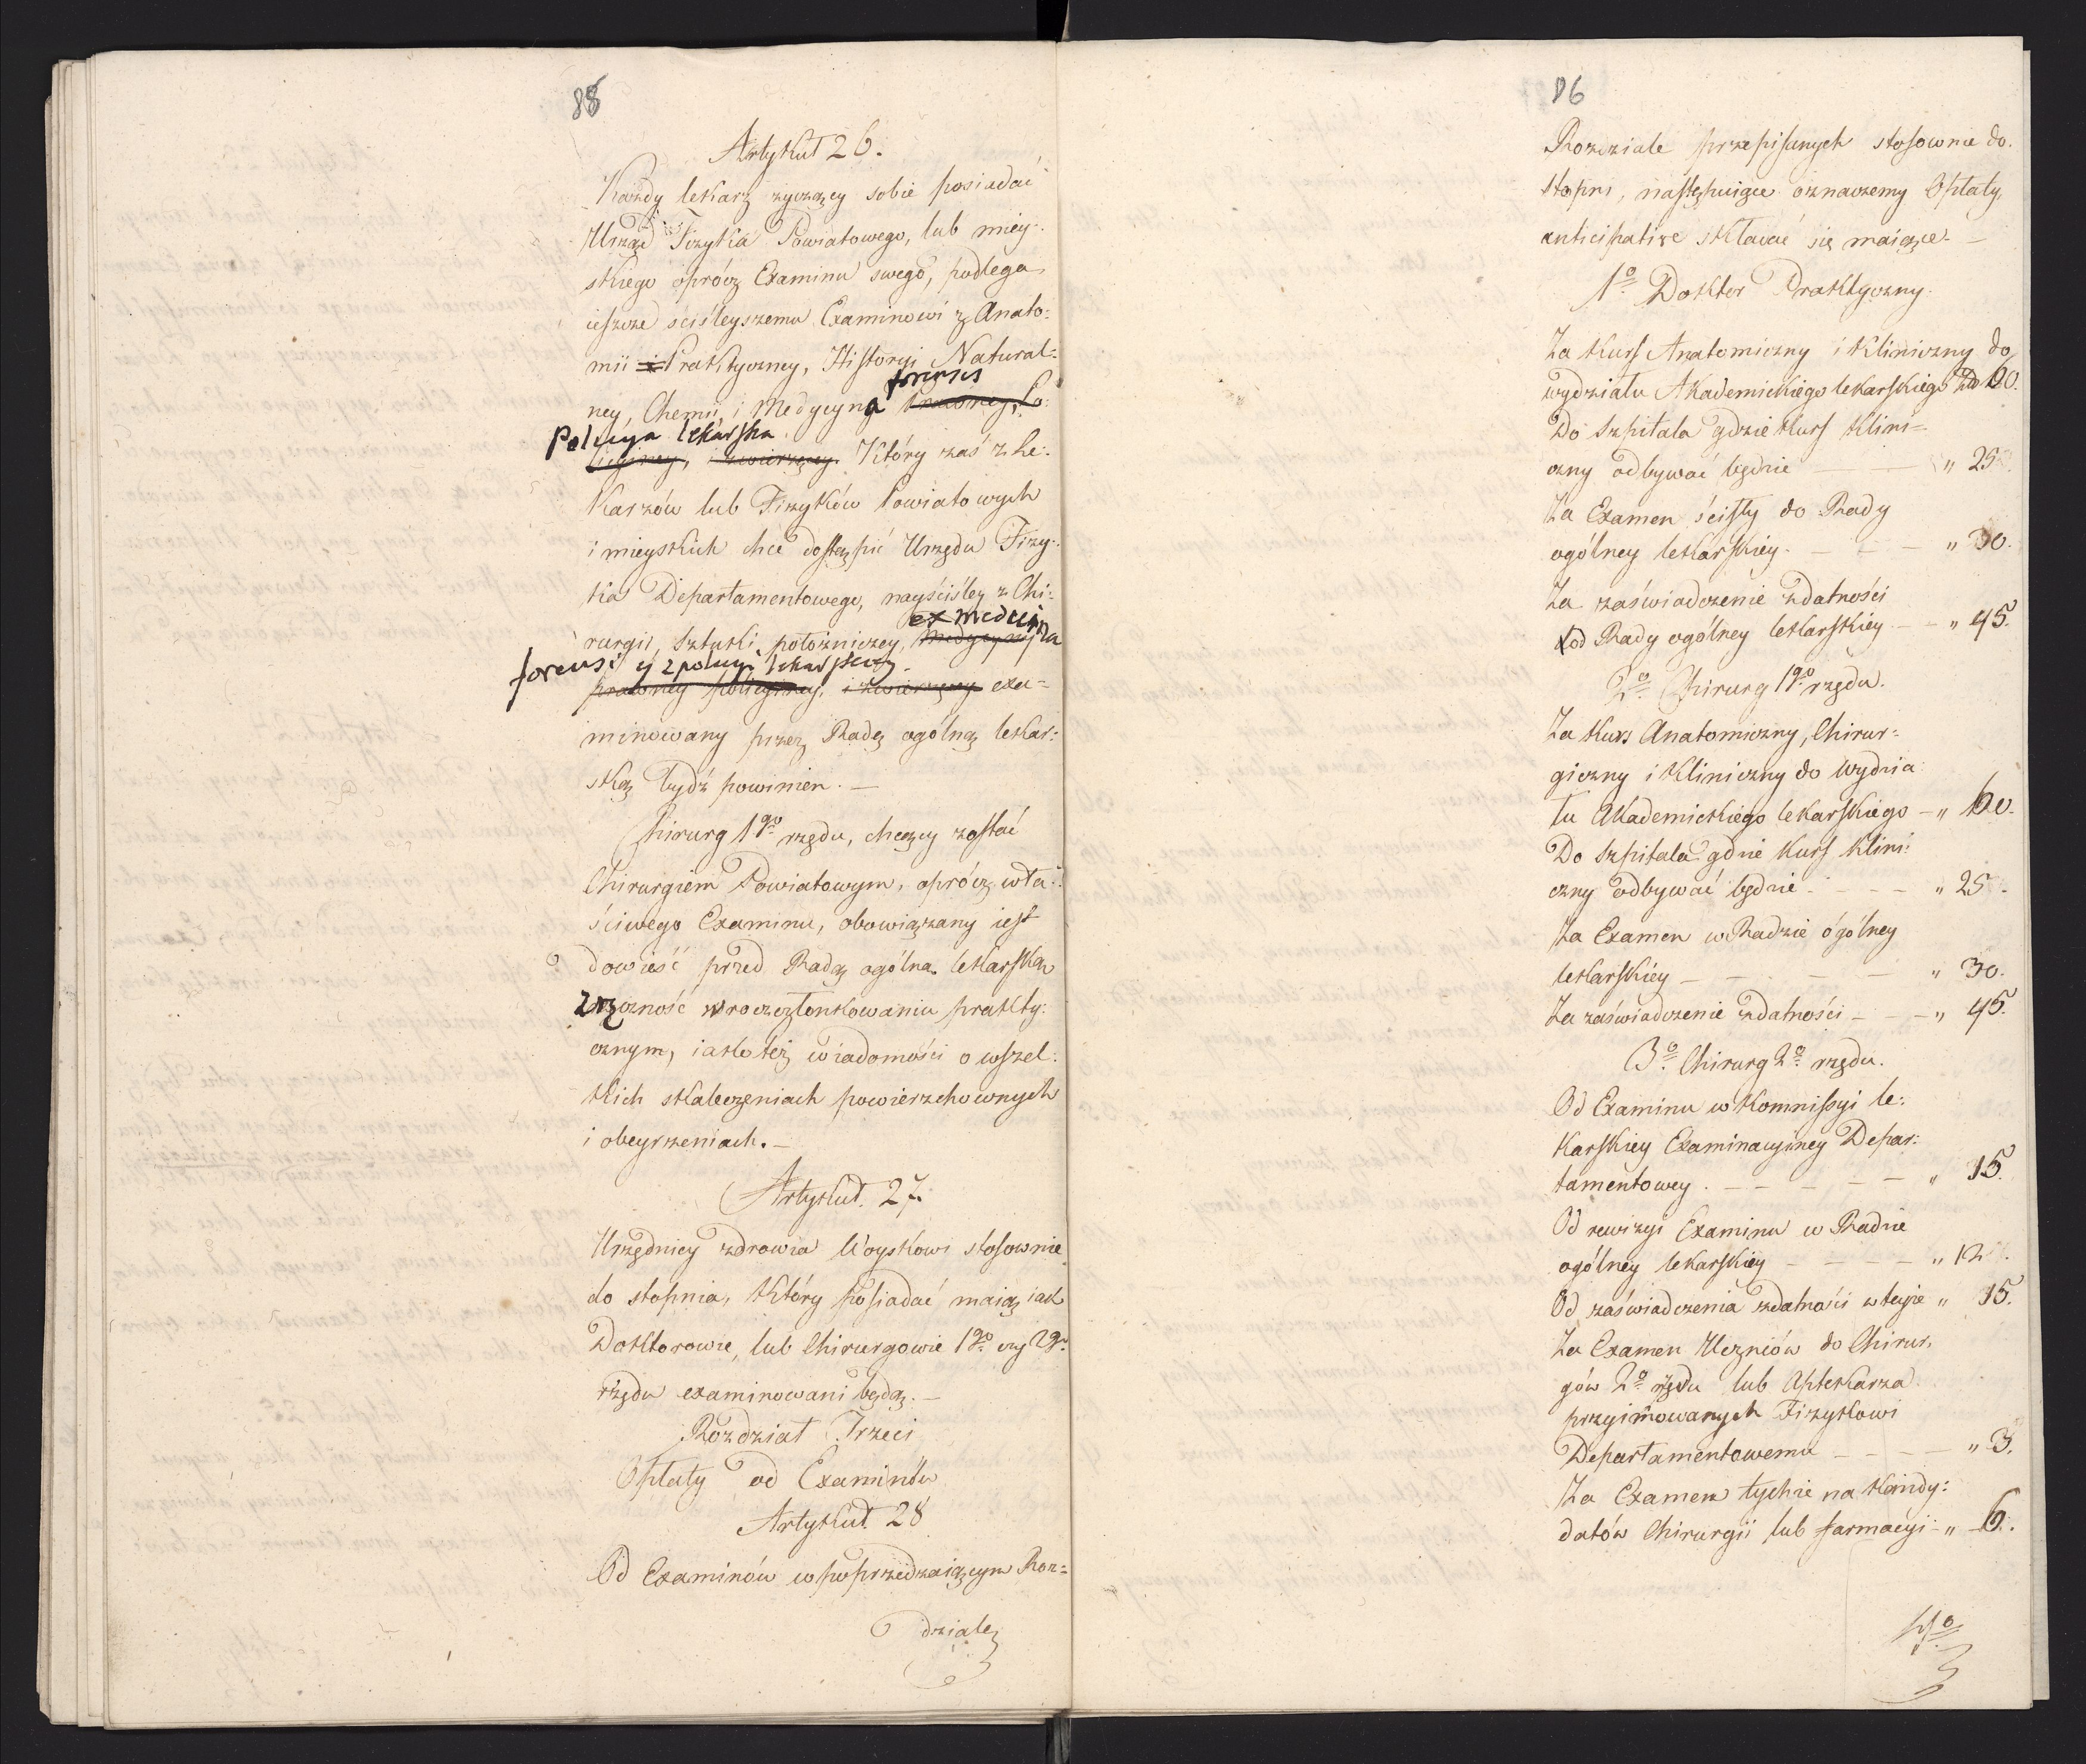 85
Artykuł 26.
Każdy lekarz zyczący sobie posiadać
Urząd Fizyka Powiatowego, lub miey:
skiego oprócz Examinu swego, podlega
ieszcze ściśleyszemu Examinowi z Anato:
mii i Praktyczney, Historyi Natural=
forensis
ney, Chemii, i Medycyna prawney, Po:
Policya lekarska
licyiney, i zwierzęcey. Który zaś z Le:
karzów lub Fizyków Powiatowych
i mieyskich chce dostąpić Urzędu Fizy:
ka Departamentowego, nayściśley z Chi:
ex medicina
rurgii, Sztuki położniczey, Medycyny
forensi y z policyi lekarskiey
prawney policyiney, i zwierzęcey exa=
minowany przez Radę ogólną lekar:
ską bydź powinien. —
Chirurg 1go rzędu, chcący zostać
Chirurgiem Powiatowym, oprócz wła:
ściwego Examinu, obowiązany iest
dowieść przed Radą ogólną lekarską
zręczność w rozczłonkowaniu prakty:
cznym, iako też wiadomości o wszel:
kich skaleczeniach powierzchownych
i obeyrzeniach. —
Artykuł. 27.
Urzędnicy zdrowia Woyskowi stosownie
do stopnia, który posiadać maią iak
Doktorowie, lub Chirurgowie 1go czy 2go
rzędu examinowani będą. —
Rozdział Trzeci
Opłaty od Examinów
Artykuł. 28
Od Examinów w poprzedzaiącym Roz=
dziale
86
Rozdziale przepisanych stosownie do
stopni, następuiące oznaczemy Opłaty,
anticipative składać się maiące. —
1o Doktor Praktyczny.
Za kurs Anatomiczny i Kliniczny do
wydziału Akademickiego lekarskiego 60.
Do Szpitala gdzie kurs Klini=
czny odbywać będzie — — „ 25.
Za Examen ścisły do Rady
ogólney lekarskiey. — — — „ 30.
Za zaświadczenie zdatności
od Rady ogólney lekarskiey — — „ 45.
2o Chirurg 1go rzędu.
Za Kurs Anatomiczny, Chirur=
giczny i Kliniczny do Wydzia
łu Akademickiego lekarskiego — „ 60.
Do Szpitala gdzie kurs klini:
czny odbywać będzie — — — „ 25.
Za Examen w Radzie ogólney
lekarskiey — — — — „ 30.
Za zaświadczenie zdatności — — „ 45.
3o Chirurg 2o rzędu.
Od Examinu w Kommissyi le:
karskiey Examinacyiney Depar:
tamentowey. — — — — — „ 15.
Od rewizyi Examinu w Radzie
ogólney lekarskiey — — — — „ 12.
Od zaświadczenia zdatności w teyże „ 15.
Za Examen Uczniów do Chirur,
gów 2o rzędu lub Aptekarza
przyimowanych Fizykowi
Departamentowemu — — — „ 3.
Za Examen tychże na Kandy:
datów Chirurgii lub farmacyi — „ 6.
4o